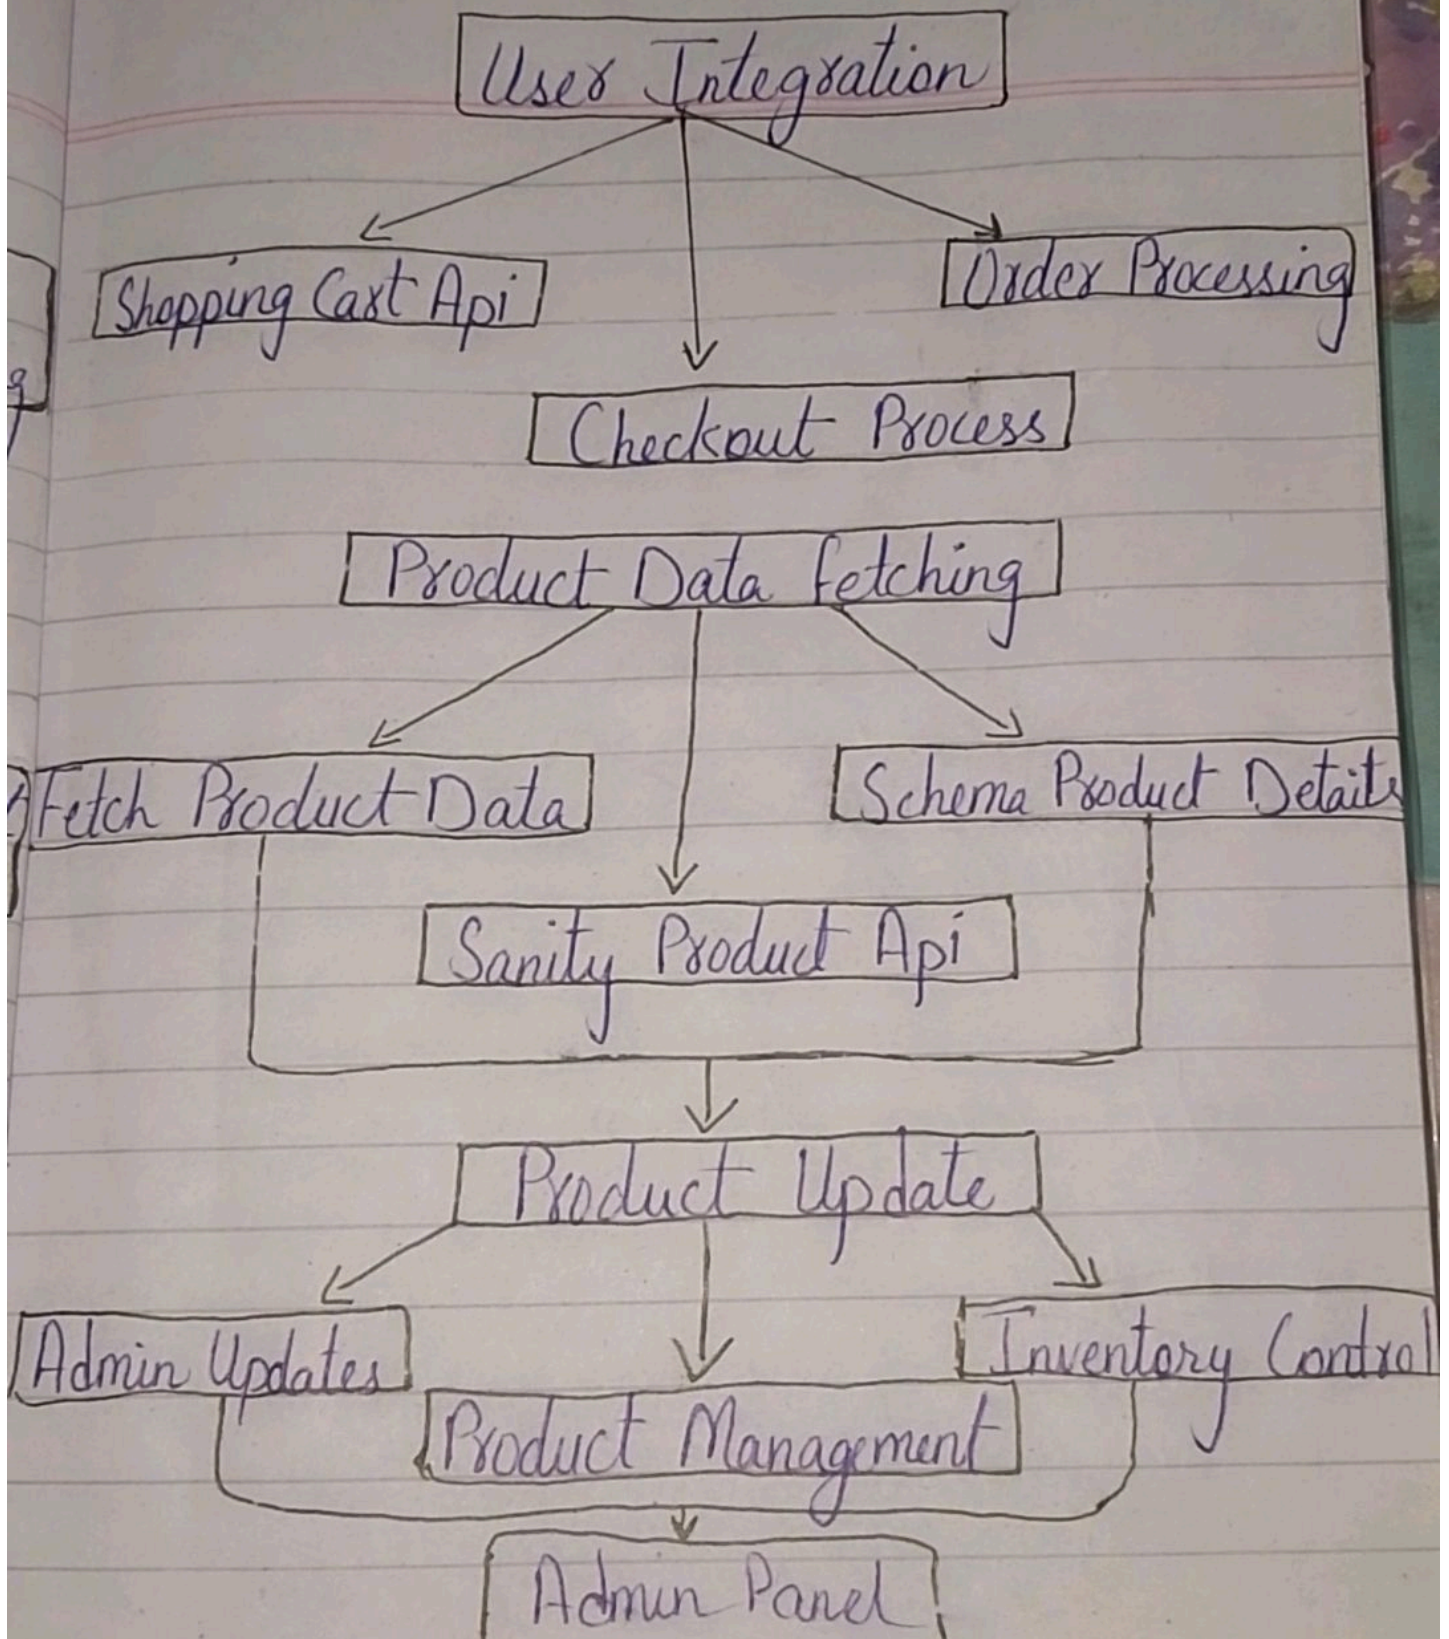 User Integration
Shopping Cart Api
Order Processing
Checkout Process
Product Data Fetching
Fetch Product Data
Schema Product Details
Sanity Product Api
Product Update
Admin Updates
Inventory Control
Product Management
Admin Panel